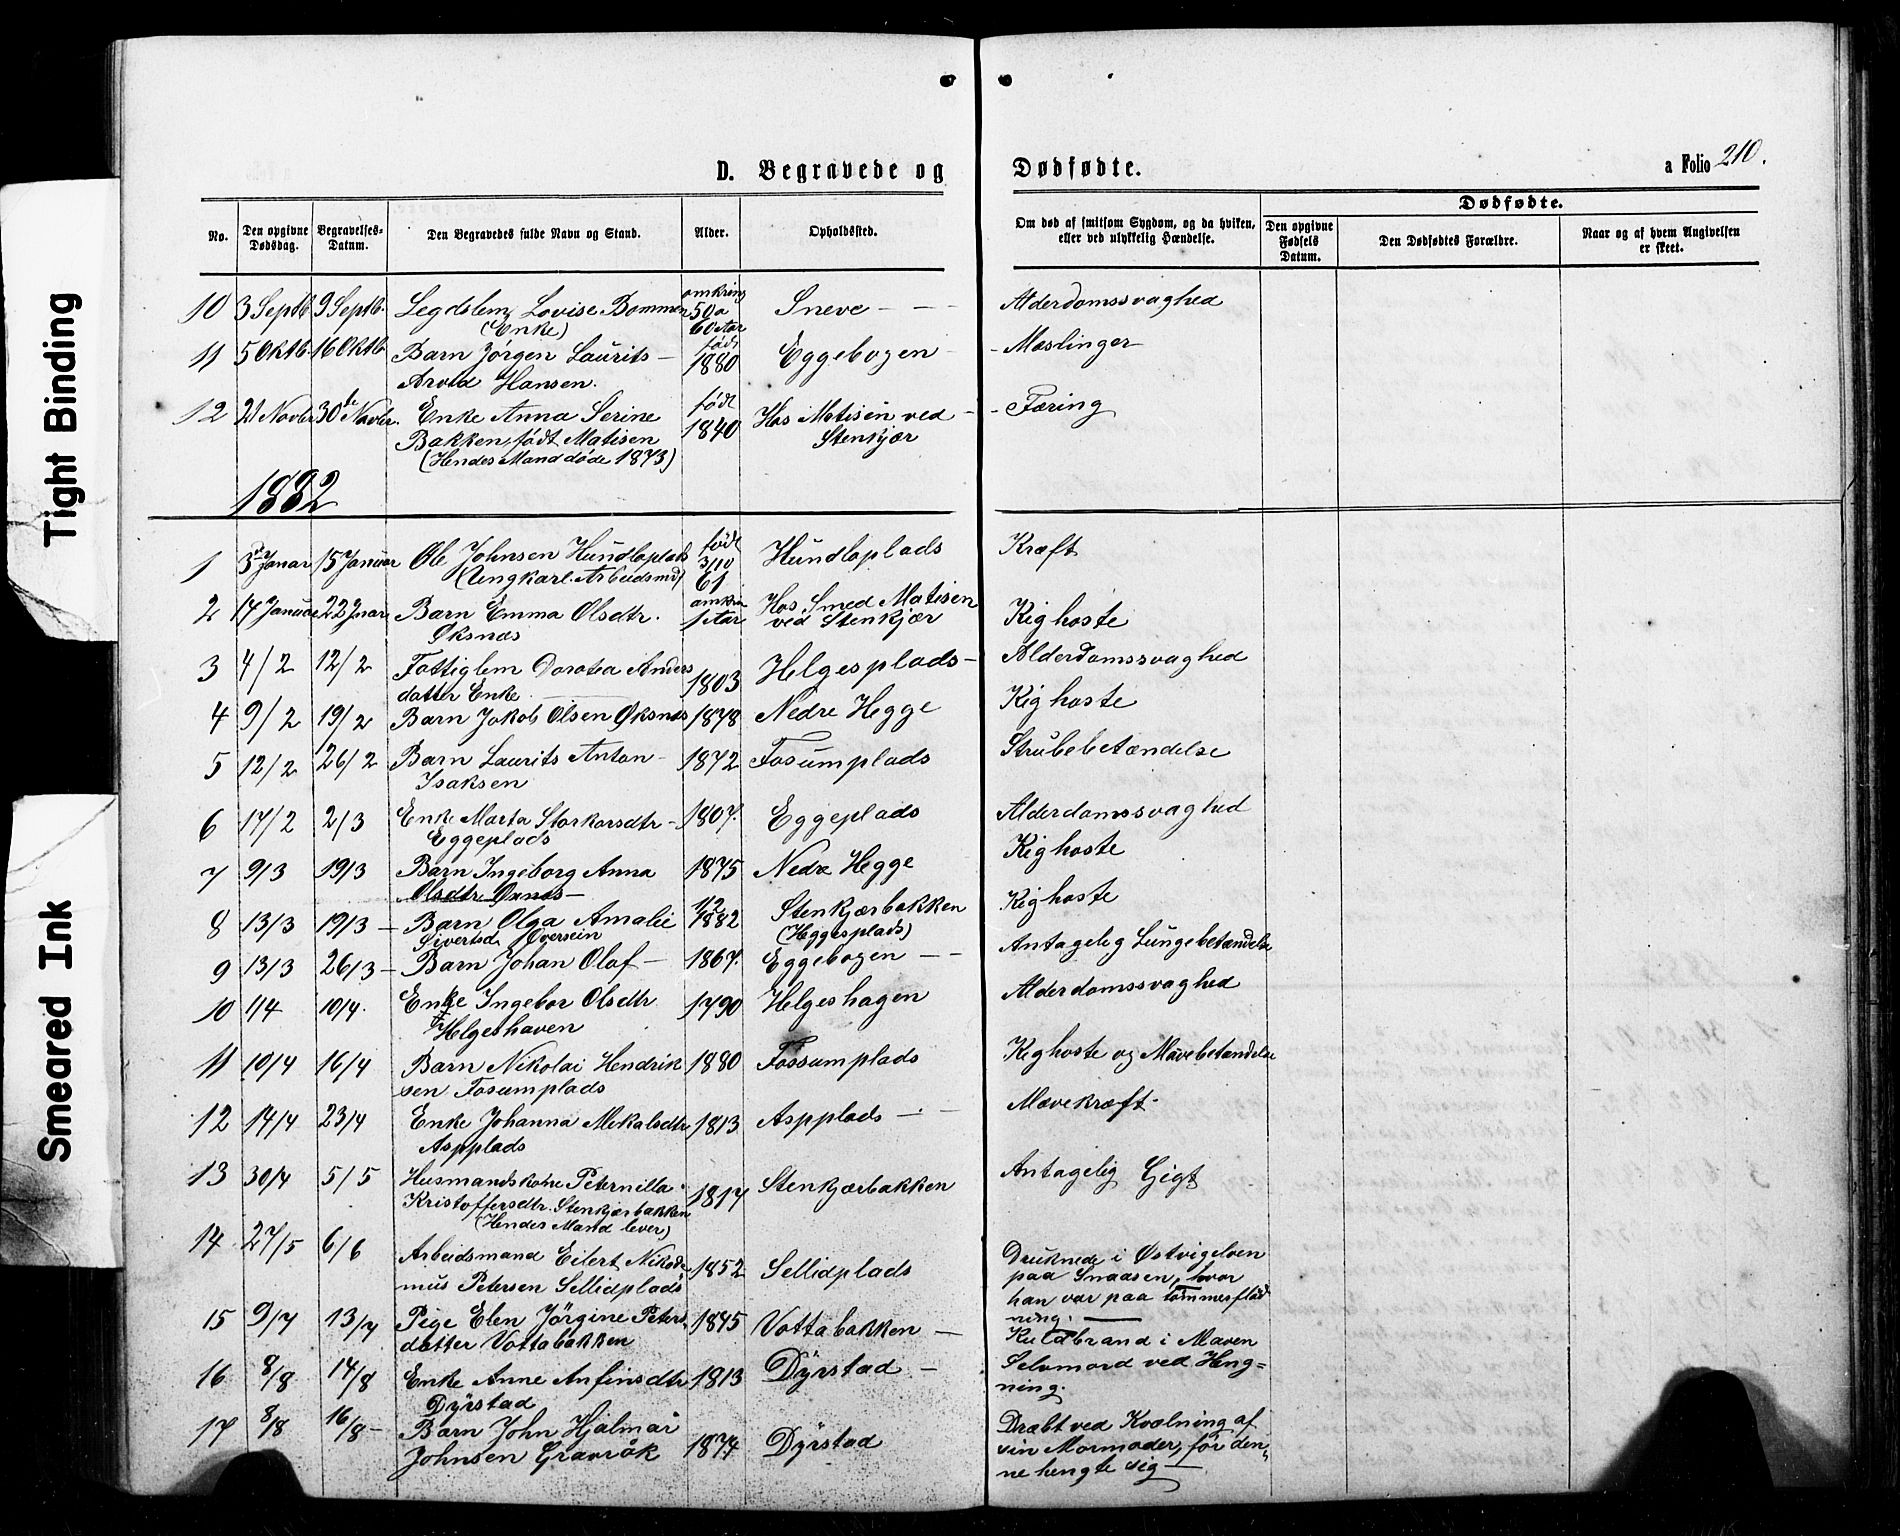 Tight Binding
Smeared Ink
D. Begravede og Dødfødte.
a Folio 210.
No.
Den opgivne Dødsdag.
Begravelses-Datum.
Den Begravedes fulde Navn og Stand.
Alder.
Opholdssted.
Om død af smitsom Sygdom, og da hvilken, eller ved ulykkelig Hændelse.
Dødfødte.
Den opgivne Fødsels Datum.
Den Dødfødtes Forældre.
Naar og af hvem Angivelsen er skeet.
10 3 Septb. 9 Septb. Legdslem Lovise Bommen (Enke) omkring 50 a 60 Aar Sneve - - Alderdomssvaghed
11 5 Oktb. 16 Oktb Barn Jørgen Laurits - Arvid Hansen. født 1880 Eggebogen - - Mæslinger
12 21 Novbr 30te Novbr. Enke Anna Serine Bakken, født Matisen (Hendes Mand døde 1873) født 1840 Hos Matisen ved Stenkjær - - Tæring
1882
1 3die Januar 15 Januar Ole Johnsen Hundloplads (Ungkarl. Arbeidsmd) født 3/10 61 Hundloplads Kræft
2 17 Januar 22 Jnuar Barn Emma Olsdtr. Øksnæs omkrin 1 Aar Hos Smed Matisen ved Stenkjær Kighoste
3 4/2 12/2 Fattiglem Dorotea Anders datter Enke 1803 Helgesplads - Alderdomssvaghed
4 9/2 19/2 Barn Jakob Olsen Øksnæs 1878 Nedre Hegge Kighoste
5 12/2 26/2 Barn Laurits Anton - Isaksen 1872 Fosumplads Strubebetændelse
6 17/2 2/3 Enke Marta Storkarsdtr - Eggeplads 1807. Eggeplads Alderdomssvaghed
7 9/3 19/3 Barn Ingeborg Anna Olsdtr Øxnæs - 1875 Nedre Hegge Kighoste
8 13/3 19/3 - Barn Olga Amalie Sivertsd. Øversein 1/2 1882 Stenkjærbakken (Heggesplads) Kighoste
9 13/3 26/3 - Barn Johan Olaf - 1867. Eggebogen - - Antagelig Lungebetændelse
10 1/4 10/4. Enke Ingebor Olsdtr Helgeshaven 1790 Helgeshagen Alderdomssvaghed
11 10/4 16/4 Barn Nikolai Hendrik sen Fosumplads 1880 Fossumplads Kighoste og Mavebetændelse
12 14/4 23/4 Enke Johanna Mikalsdtr Aspplads 1813 Aspplads - - Mavekræft
13 30/4 5/5 Husmandskone Peternilla Kristoffersdtr. Stenkjærbakken (Hendes Mand lever) 1817 Stenkjærbakken Antagelig Gigt
14 27/5 6/6 Arbeidsmand Eilert Nikode mus Petersen Sellidplads 1852 Sellidplads Druknede i Østvigelven paa Snaasen, hvor han var paa tømmerflød ning.
15 9/7 13/7 Pige Elen Jörgine Peters datter Vottabakken 1845 Vottabakken - Kuldbrand i Maven
16 8/8 14/8 Enke Anne Anfinsdtr Dyrstad 1813 Dyrstad - Selvmord ved Heng= ning.
17 8/8 16/8 - Barn John Hjalmar Johnsen Gravråk 1874 Dyrstad Dræbt ved Kvælning af sin Mormoder, før den= ne hengte sig -